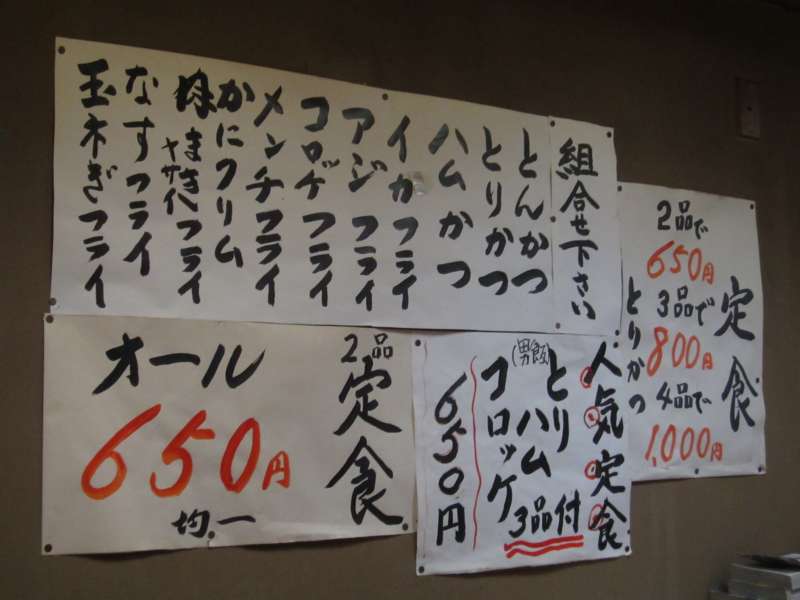 組合せ下さい
とんかつ
とりかつ
ハムかつ
イカフライ
アジフライ
コロッケフライ
メンチフライ
かにクリーム
肉まきフライ
ヤサイ
なすフライ
玉ネぎフライ
定食
2品で
650円
3品で
800円
4品で
1,000円
とりかつ
人気定食
(男飯)
とり
ハム
コロッケ
3品付
650円
2品
定食
オール
650円
均一